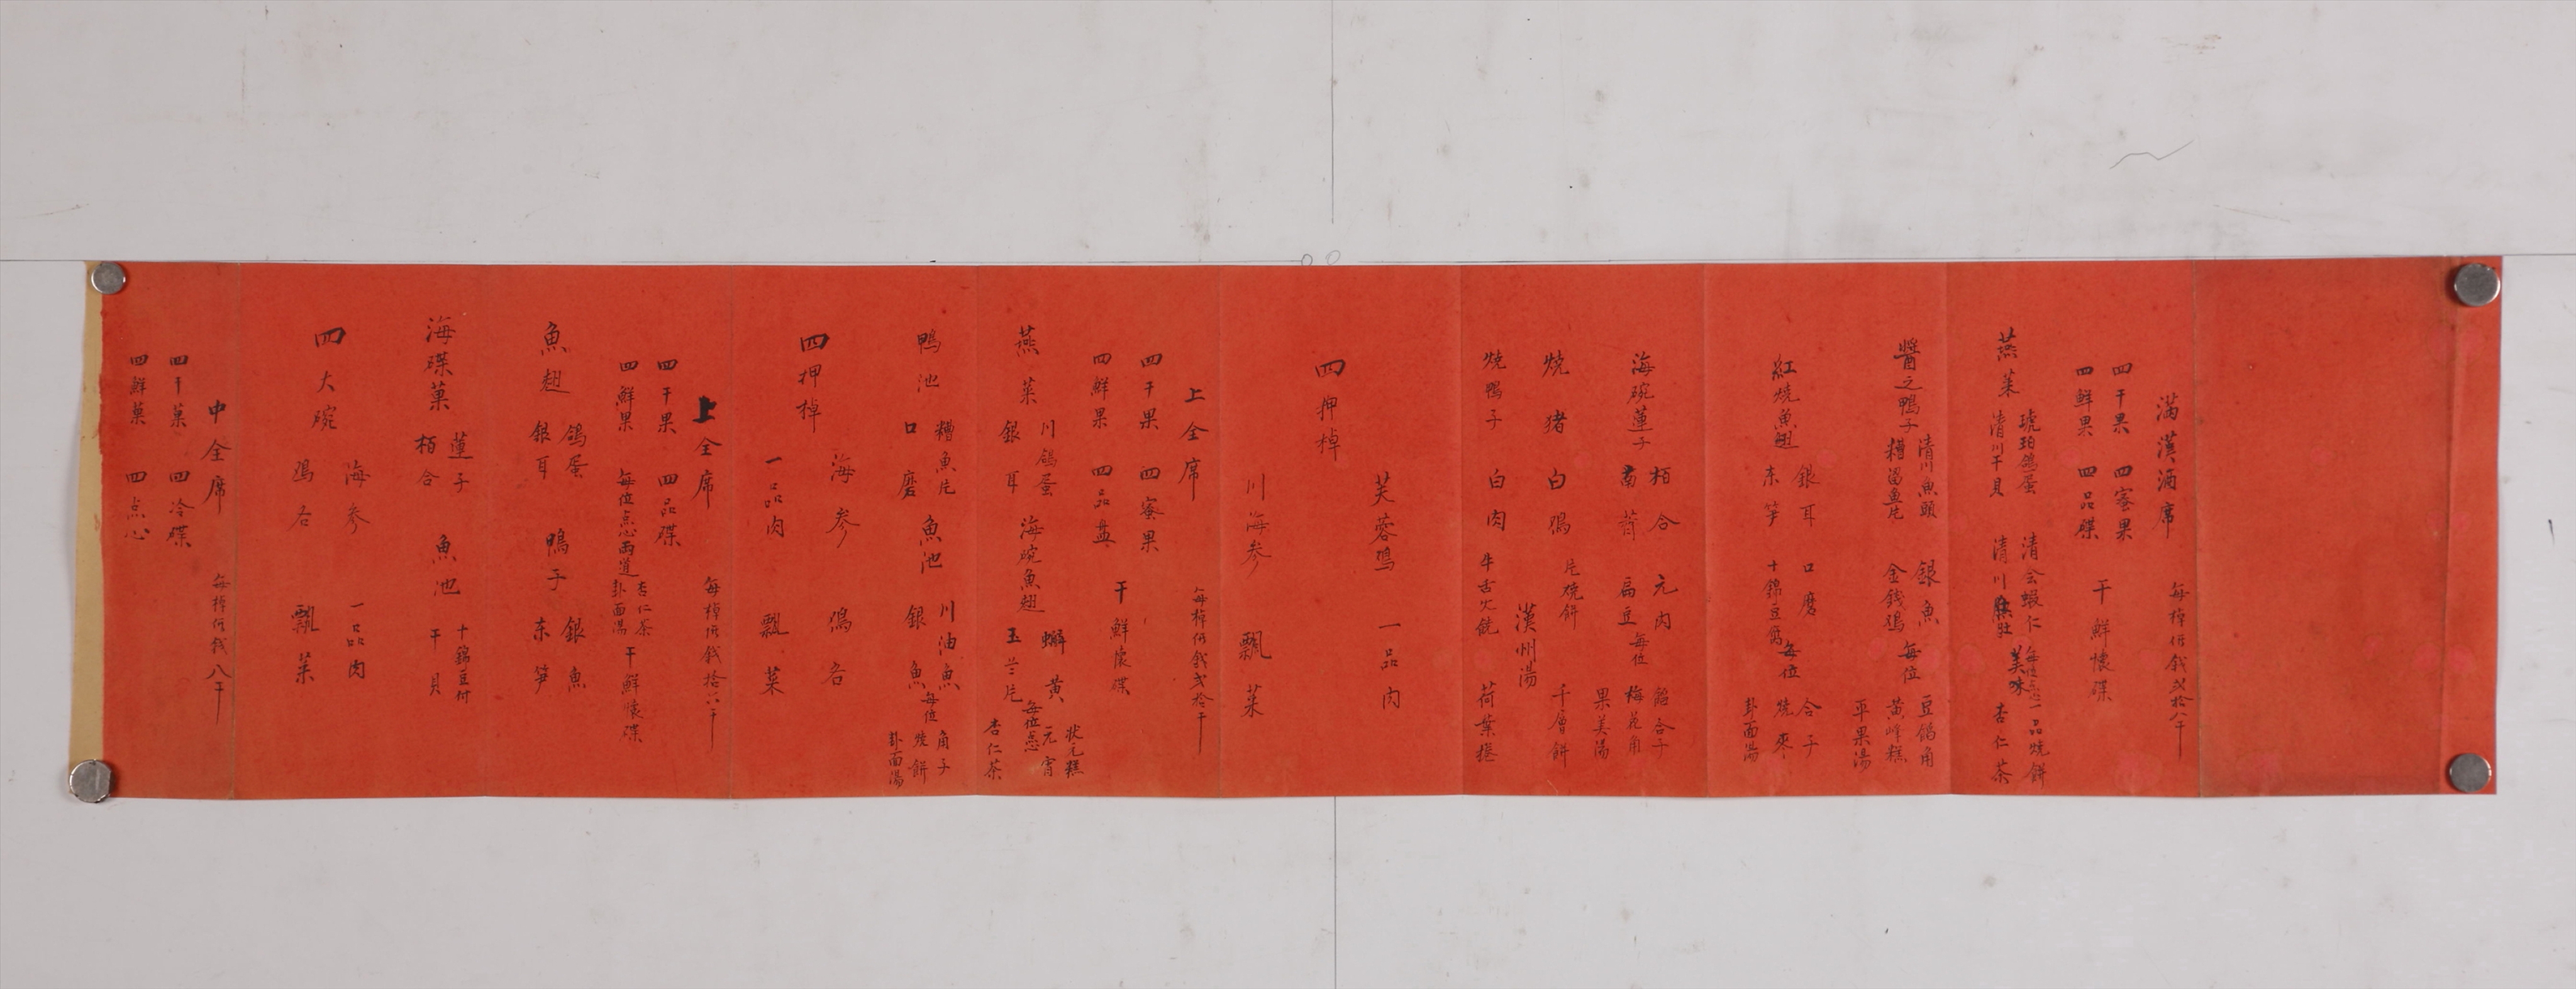 滿漢酒席
每棹價錢弍拾八千
四干果 四蜜果
四鮮果 四品碟
干鮮懷碟
燕菜
琥珀鴿蛋
清川干貝
清会蝦仁
清川
每位
美味
一品燒餅
杏仁茶
醬之鴨子
清川魚頭
糟溜魚片
銀魚
金錢鴻
每位
豆餡角
黃峰糕
平果湯
紅燒魚翅
銀耳
东笋
口磨
十錦豆腐
每位
合子
燒枣
卦面湯
海碗蓮子
栢合
南薺
元肉
扁豆
每位
餡合子
梅花角
果美湯
燒猪 白鴻
片燒餅
千層餅
漢州湯
燒鴨子 白肉
牛舌火燒
荷葉捲
四押棹
芙蓉鴻
一品肉
川海参
瓢菜
上全席
每棹價錢弍拾千
四干果 四蜜果
四鮮果 四品盘
干鮮懷碟
燕菜
川鴿蛋
銀耳
海碗魚翅
蠏黃
玉兰片
每位点心
状元糕
元宵
杏仁茶
鴨池
糟魚片
口磨
魚池
川油魚
銀魚
每位
角子
燒餅
卦面湯
四押棹
海参
一品肉
鴻
瓢菜
上全席
每棹價錢拾六千
四干果 四品碟
四鮮果 每位点心両道
杏仁茶
卦面湯
干鮮懷碟
魚翅
鴿蛋
銀耳
鴨子
銀魚
东笋
海碟菓
蓮子
栢合
魚池
十錦豆付
干貝
四大碗
海参
鴻
一品肉
瓢菜
中全席
每棹價錢八千
四干菓 四冷碟
四鮮菓 四点心